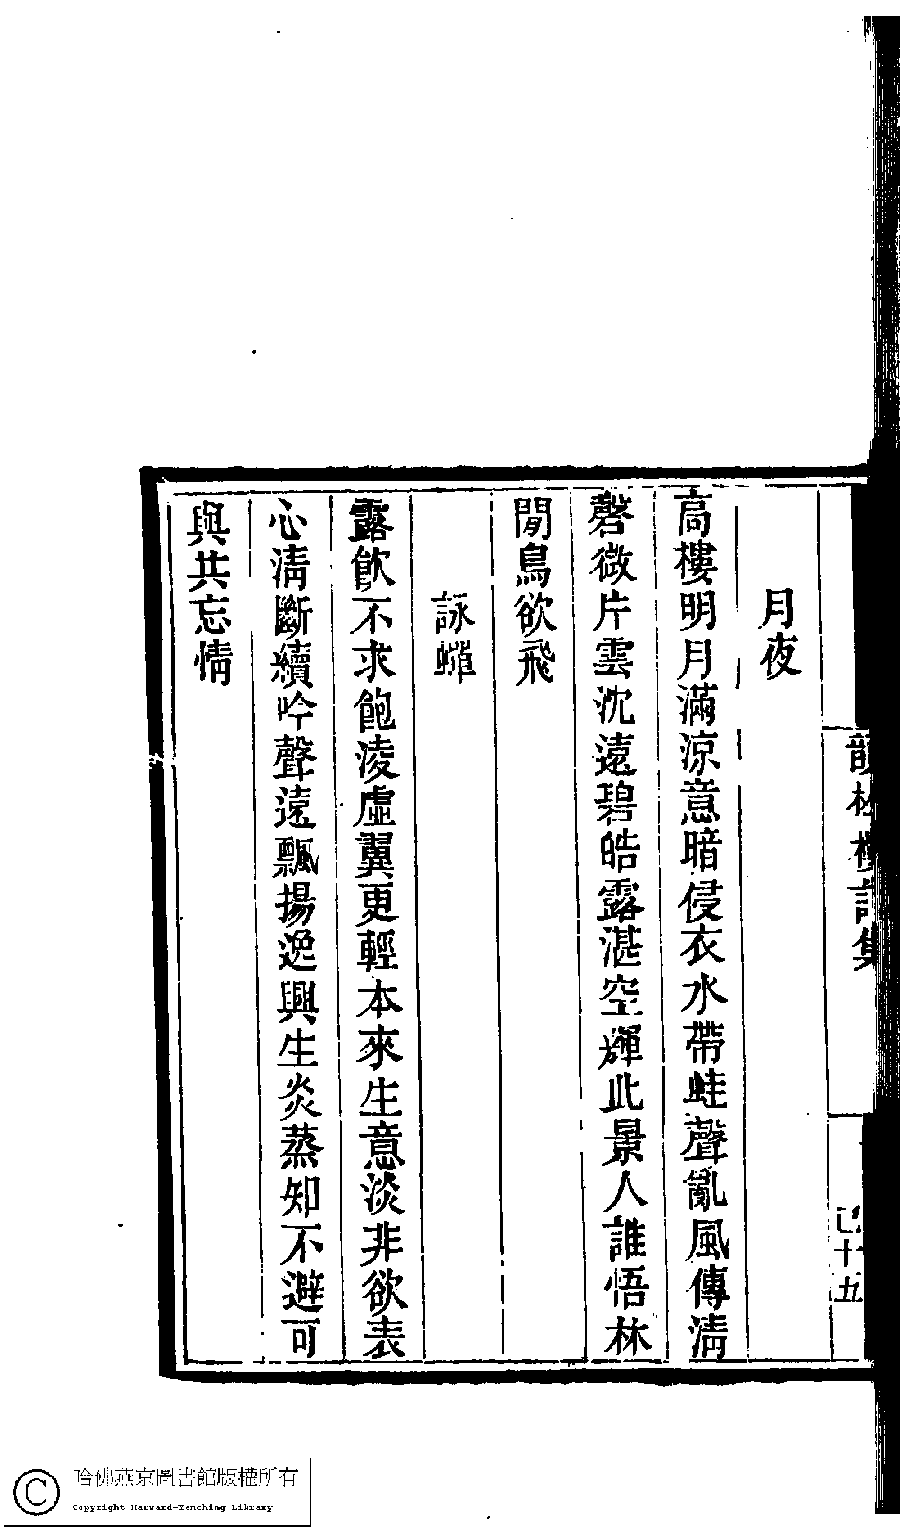 月夜
高樓明月滿涼意暗侵衣水帶蛙聲亂風傳淸
磬微片雲沈遠碧皓露湛空輝此景人誰悟林
閒鳥欲飛
詠蟬
露飮不求飽淩虛翼更輕本來生意淡非欲表
心淸斷續吟聲遠飄揚逸興生炎蒸知不避可
與共忘情
韻樓詩集
十五
哈佛燕京圖書館版權所有
Copyright Harvard-Yenching Library